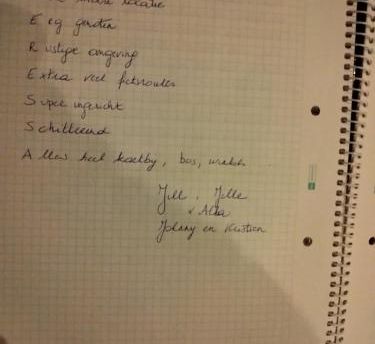 E eg genoten
R ustige omgeving
E xtra veel fietsroutes
S uper ingericht
S chitterend
A lles heel dichtby, bos, winkels
Jill, Jelle
Johnny en Kristien